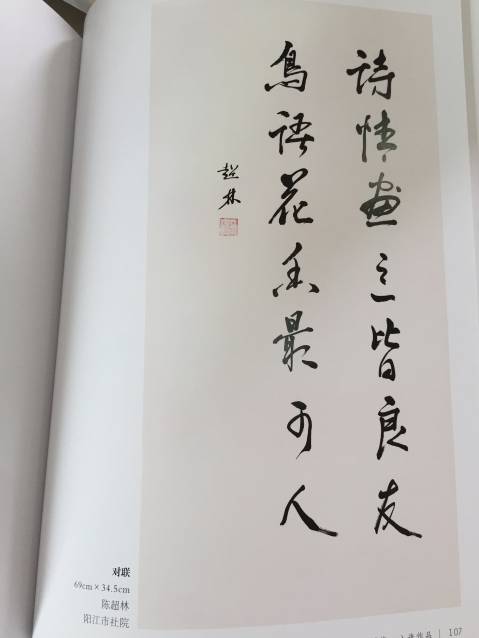 诗情画意皆良友
鸟语花香最可人
超林
对联
69cm×34.5cm
陈超林
阳江市社院
作品 | 107